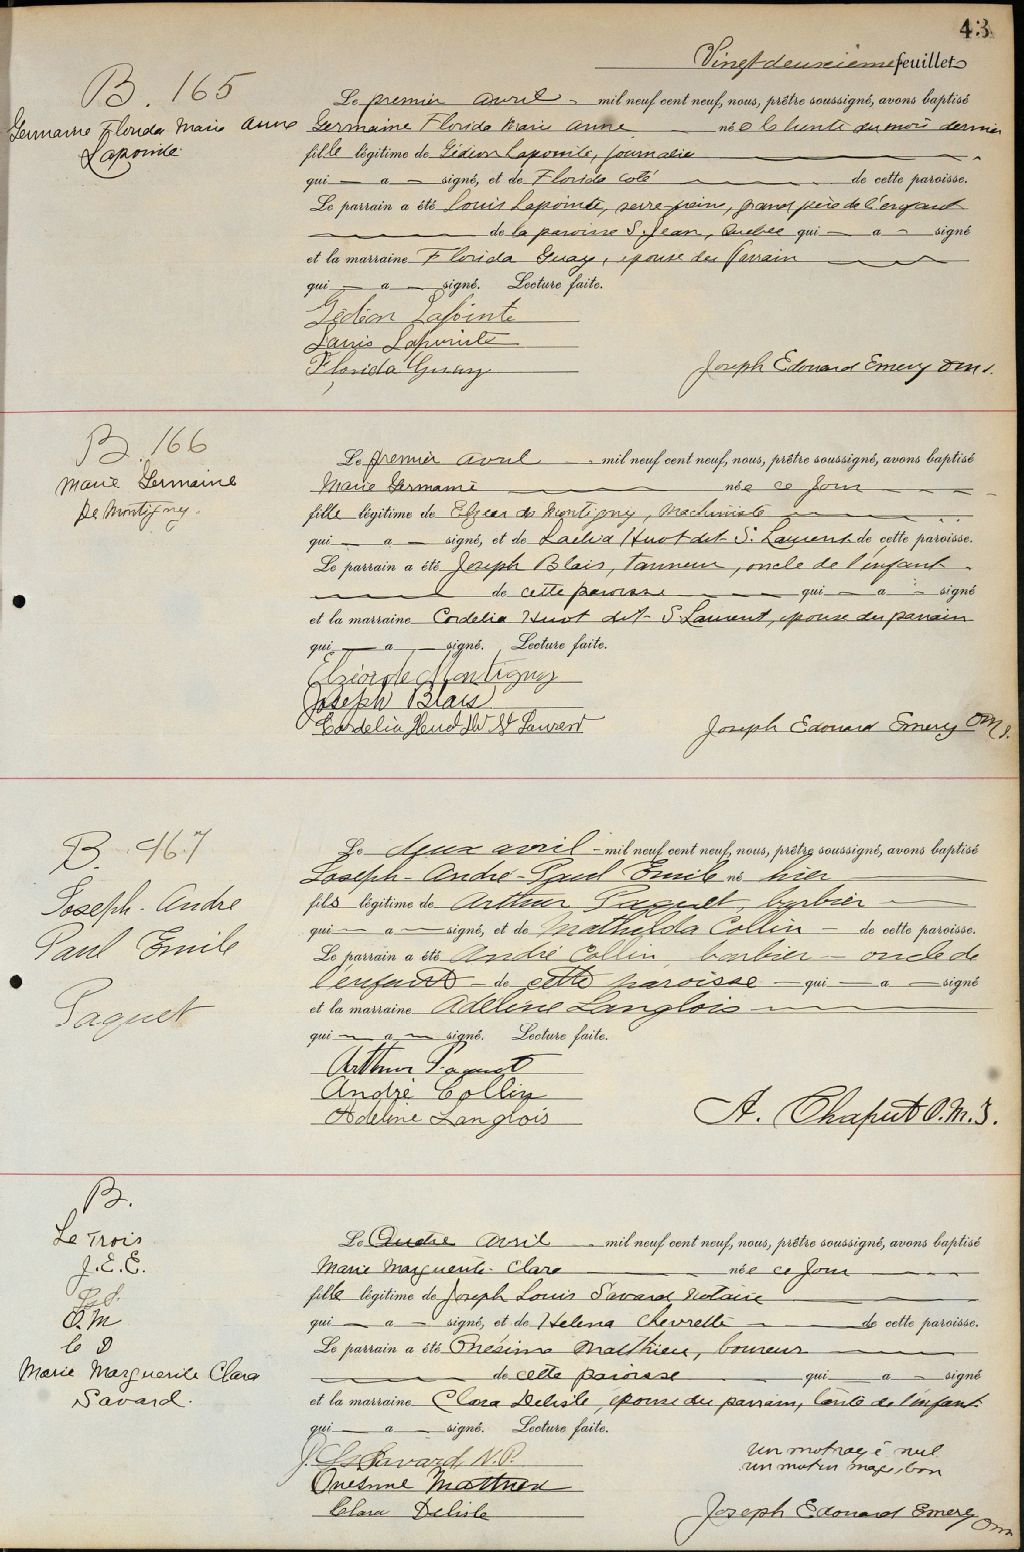 43
Vingt deuxième feuillet
B. 165
Germaine Florida Marie Anne
Lapointe
Le premier avril mil neuf cent neuf, nous, prêtre soussigné, avons baptisé
Germaine Florida Marie Anne née le trente du mois dernier
fille légitime de Gédéon Lapointe, journalier
qui — a — signé, et de Florida Coté de cette paroisse.
Le parrain a été Louis Lapointe, serre-freins, grand père de l'enfant
de la paroisse S. Jean, Québec qui — a — signé
et la marraine Florida Guay, épouse du parrain
qui — a — signé. Lecture faite.
Gédéon Lapointe
Louis Lapointe
Florida Guay
Joseph Edouard Emery OMI.
B. 166
Marie Germaine
De Montigny.
Le premier avril mil neuf cent neuf, nous, prêtre soussigné, avons baptisé
Marie Germaine née ce jour
fille légitime de Elzear de Montigny, machiniste
qui — a — signé, et de Huot dit S. Laurent de cette paroisse.
Le parrain a été Joseph Blais, tanneur, oncle de l'enfant
de cette paroisse qui — a — signé
et la marraine Cordelia Huot dit S. Laurent, épouse du parrain
qui — a — signé. Lecture faite.
Elzéar de Montigny
Joseph Blais
Cordelia Huot dit St Laurent
Joseph Edouard Emery OMI.
B. 167
Joseph-André
Paul Emile
Paquet
Le deux avril mil neuf cent neuf, nous, prêtre soussigné, avons baptisé
Joseph-André-Paul Emile né hier
fils légitime de Arthur Paquet, barbier
qui — a — signé, et de Mathilda Collin — de cette paroisse.
Le parrain a été André Collin, barbier — oncle de
l'enfant — de cette paroisse — qui — a — signé
et la marraine Adéline Langlois
qui — a — signé. Lecture faite.
Arthur Paquet
André Collin
Adéline Langlois
A. Chaput O.M.I.
B.
Le Trois
J.E.E.
O.M
Marie Marguerite Clara
Savard.
Le avril mil neuf cent neuf, nous, prêtre soussigné, avons baptisé
Marie Marguerite Clara née ce jour
fille légitime de Joseph Louis Savard Notaire
qui — a — signé, et de Helena Chevrette de cette paroisse.
Le parrain a été Onésime Matthieu, bourreur
de cette paroisse qui — a — signé
et la marraine Clara Delisle, épouse du parrain, tante de l'enfant
qui — a — signé. Lecture faite.
J. Ls Savard N.P.
Onésime Matthieu
Clara Delisle
un mot rayé nul
un mot en marge, bon
Joseph Edouard Emery OMI